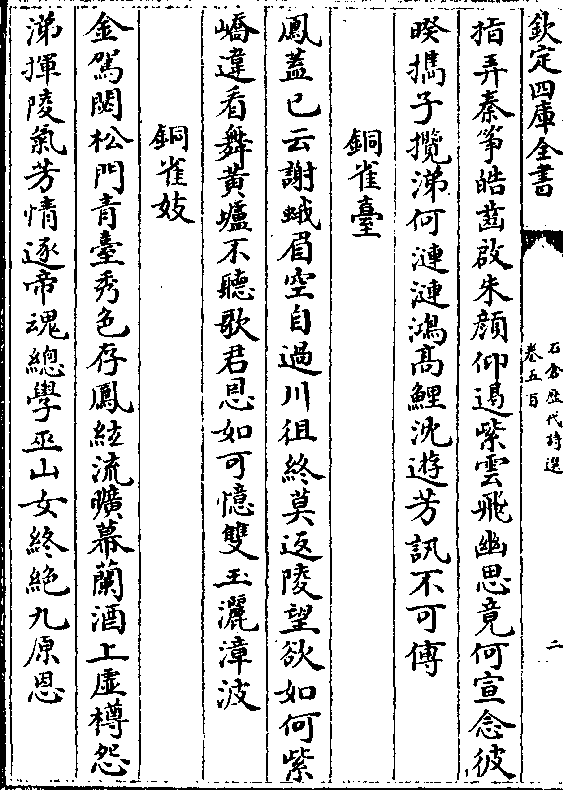 欽定四庫全書
石倉歷代詩選
卷五百
二
指弄秦箏皓齒啟朱顔仰遏紫雲飛幽思竟何宣念彼
暌攜子攬涕何漣漣鴻高鯉沈逰芳訊不可傳
銅雀臺
鳳蓋已云謝蛾眉空自過川徂終莫返陵望欲如何紫
嶠違看舞黄壚不聽歌君恩如可憶雙玉灑漳波
銅雀妓
金駕閟松門青臺秀色存鳳絃流曠幕蘭酒上虚樽怨
涕揮陵氣芳情逐帝魂總學巫山女終絶九原恩